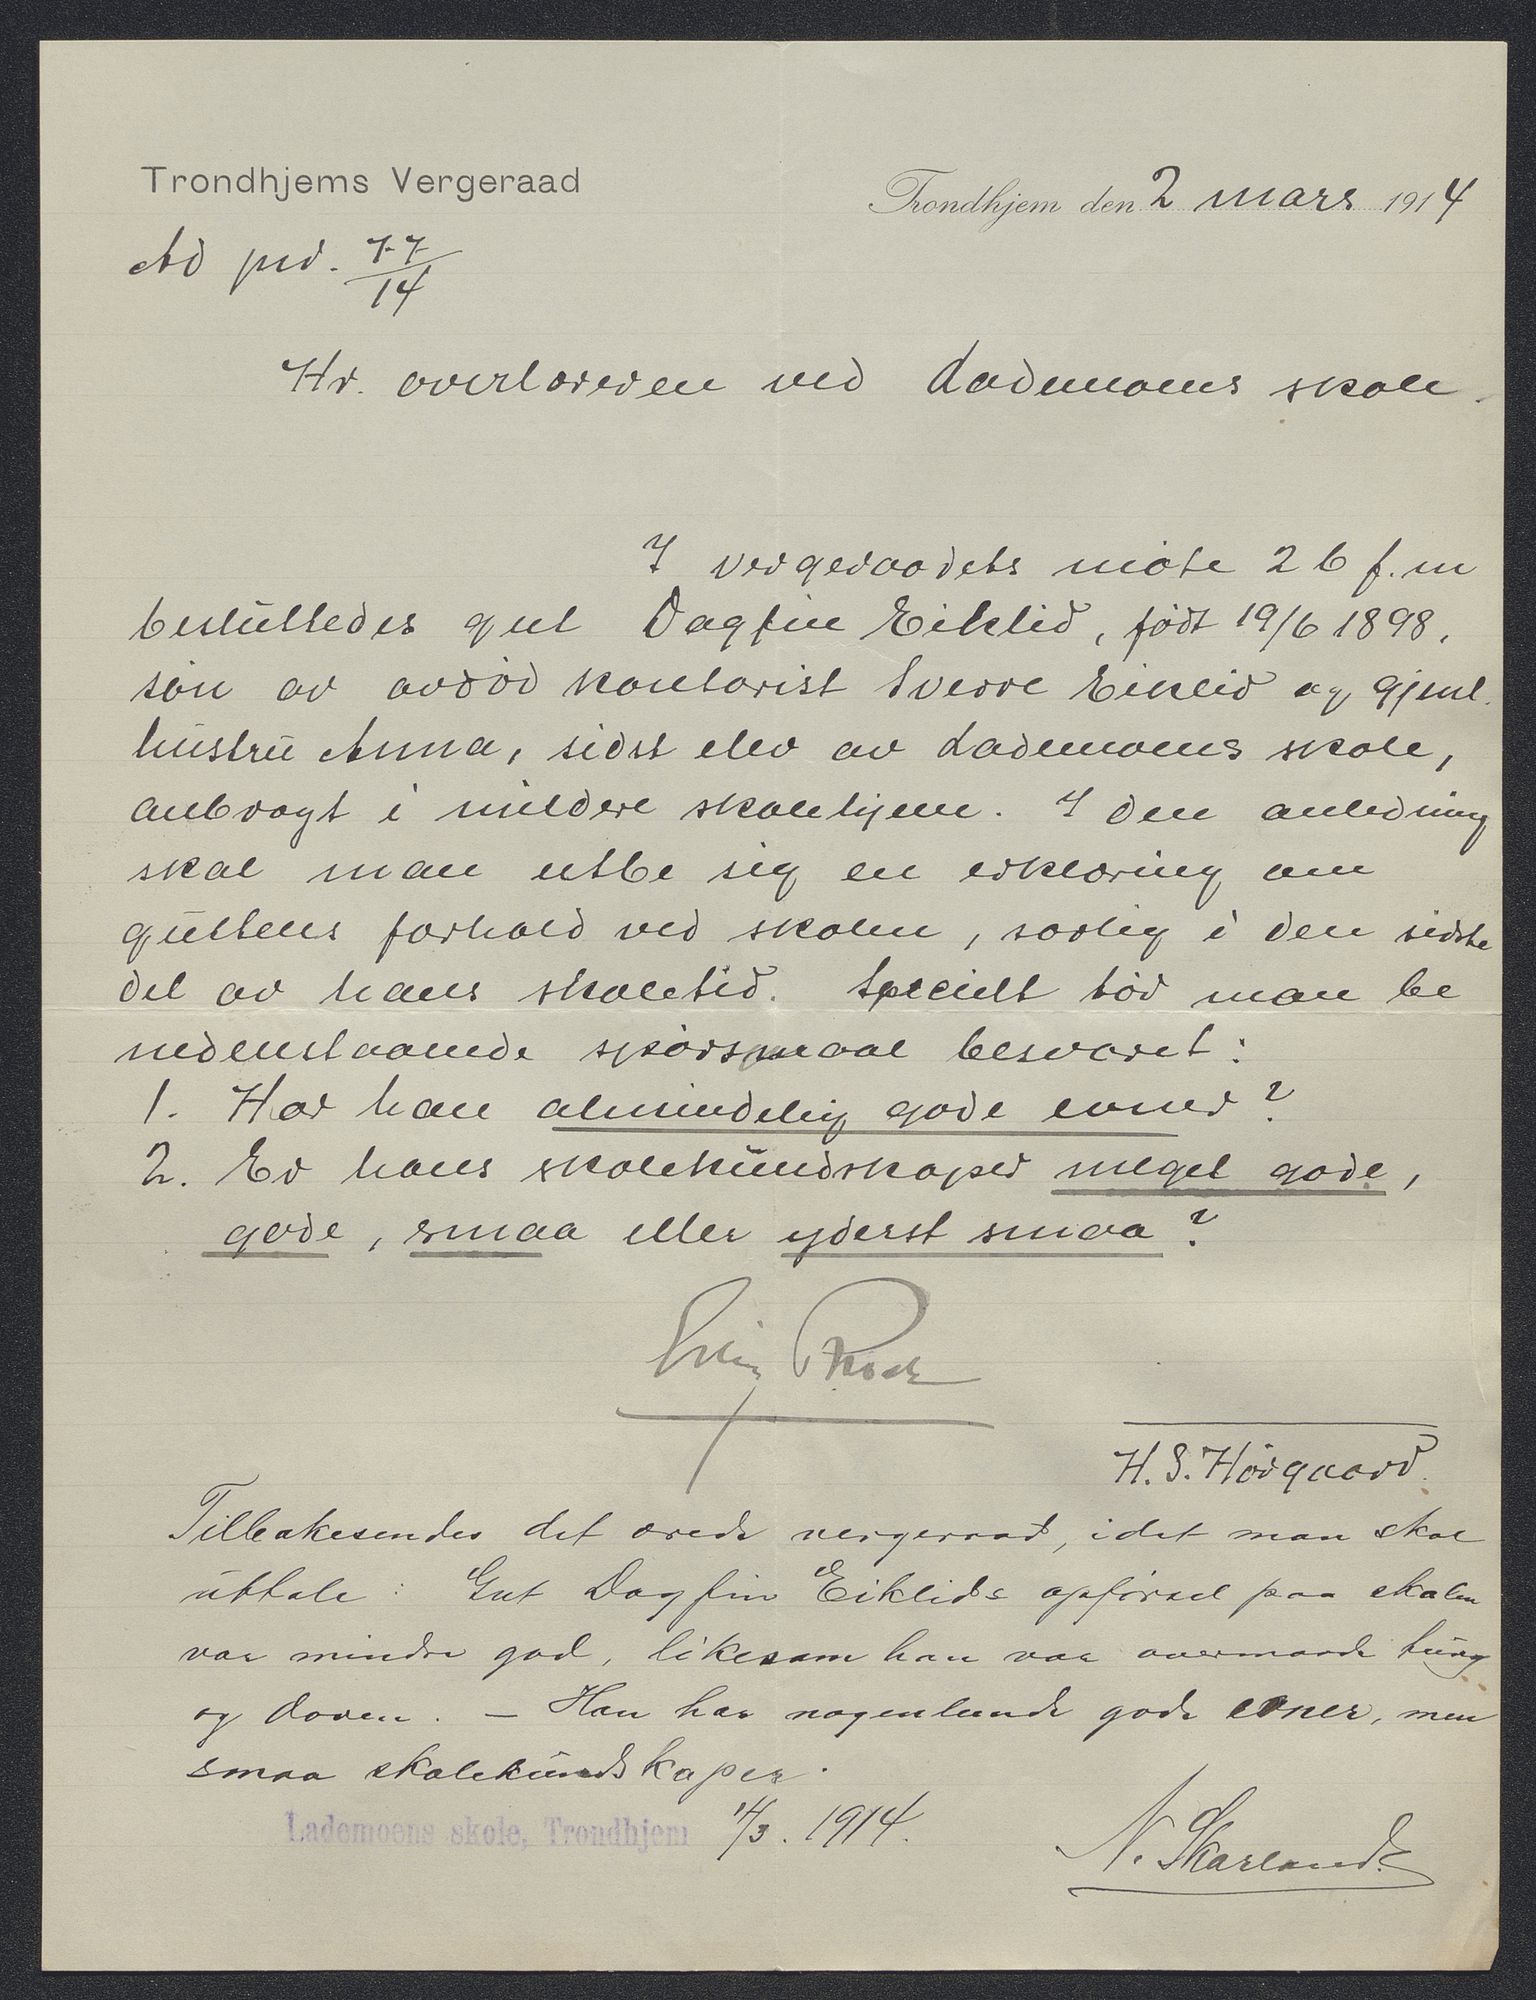 Trondhjems Vergeraad
Trondhjem den 2 mars 1914
Ad prd. 77/14
Hr. overlæreren ved Lademoens skole.
I vergeraadets møte 26 f.m
besluttedes gut Dagfin Eiklid, født 19/6 1898,
søn av avdød kontorist Sverre Eiklid og gjenl.
hustru Anna, sidst elev av Lademoens skole,
anbragt i mildere skolehjem. I den anledning
skal man utbe sig en erklæring om
guttens forhold ved skolen, særlig i den sidste
del av hans skoletid. Specielt tør man be
nedenstaaende spørsmaal besvaret:
1. Har han almindelig gode evner?
2. Er hans skolekundskaper meget gode,
gode, smaa eller yderst smaa?
H. S. Hørgaard.
Tilbakesendes det ærede vergeraad, idet man skal
uttale: Gut Dagfin Eiklids opførsel paa skolen
var mindre god, likesom han var overmaade tung
og doven. — Han har nogenlunde gode evner, men
smaa skolekundskaper.
Lademoens skole, Trondhjem 14/3. 1914.
N. Skarland.